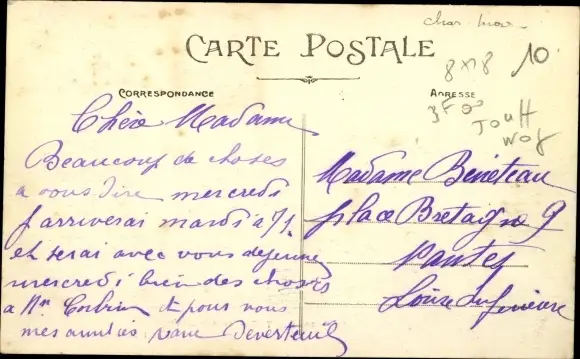 CARTE POSTALE
10
CORRESPONDANCE
ADRESSE
3F00
Chère Madame
Beaucoup de choses
a vous dire mercredi
j arriverai mardi a 7h
et serai avec vous dejeuner
mercredi bien des choses
a Mr et pour vous
mes amitiés
Madame Beneteau
place Bretagne 9
Nantes
Loire Inferieure